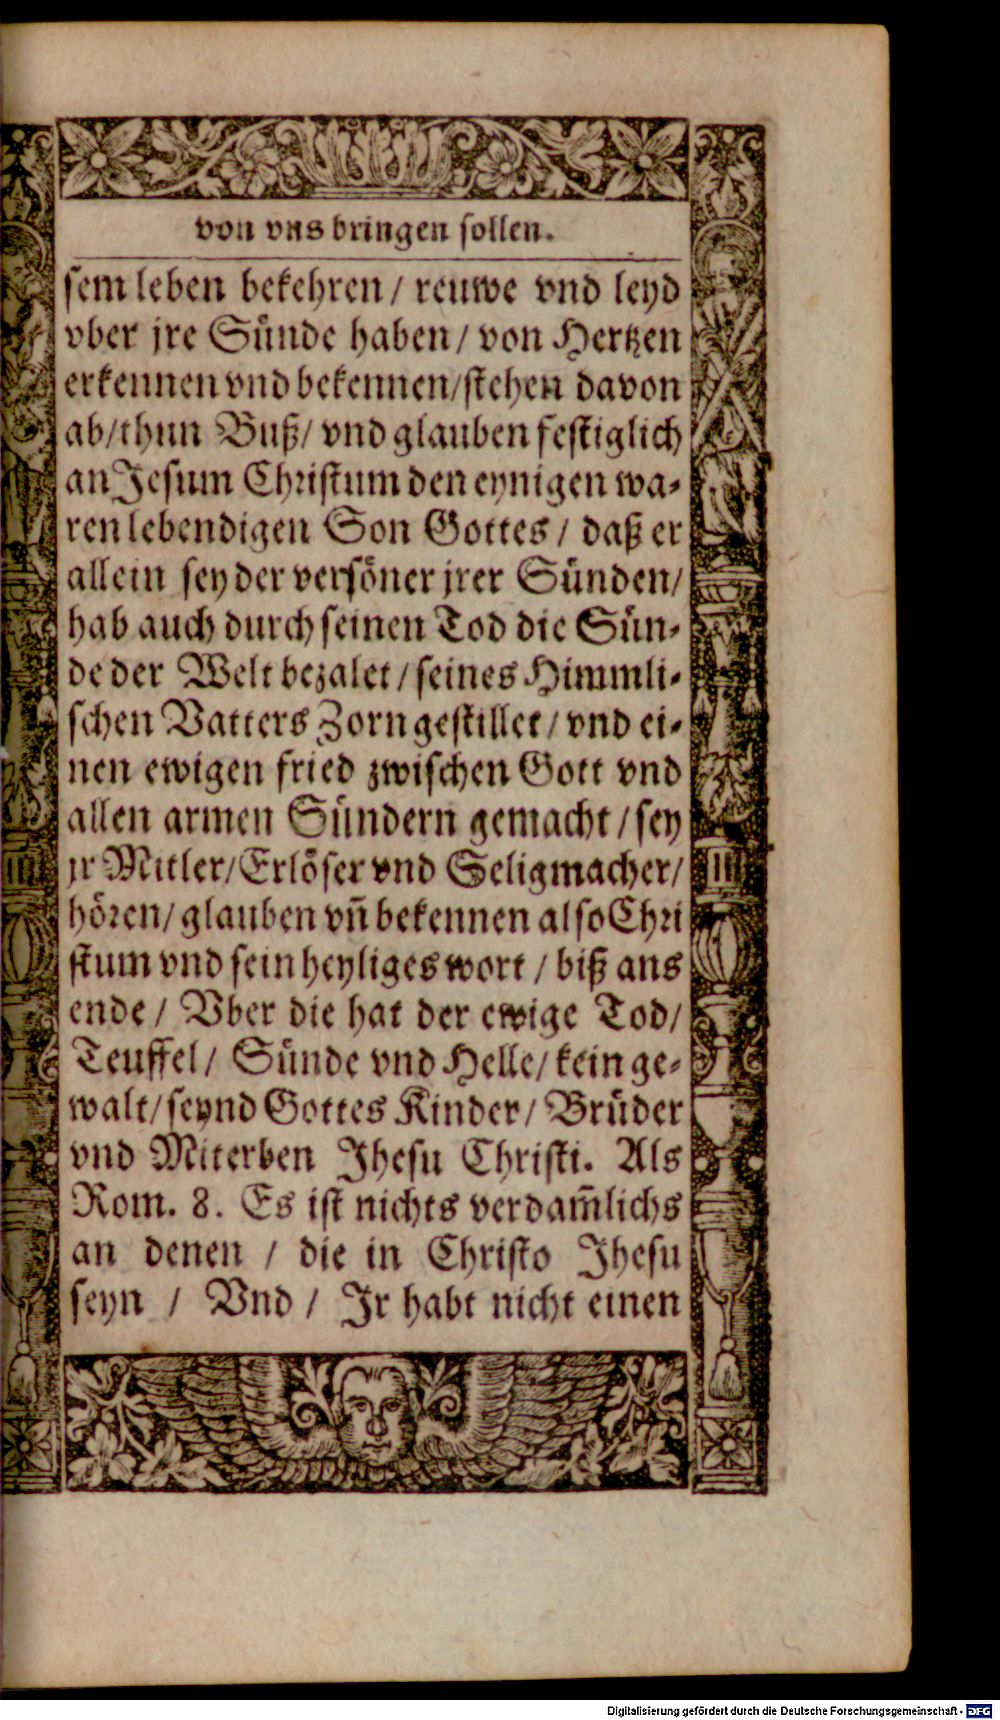 von vns bringen sollen.
sem leben bekehren / reuwe vnd leyd
vber jre Sünde haben / von Hertzen
erkennen vnd bekennen/stehen davon
ab/thun Buß/ vnd glauben festiglich
an Jesum Christum den eynigen wa-
ren lebendigen Son Gottes / daß er
allein sey der versöner jrer Sünden/
hab auch durch seinen Tod die Sün-
de der Welt bezalet / seines Himmli-
schen Vatters Zorn gestillet / vnd ei-
nen ewigen fried zwischen Gott vnd
allen armen Sündern gemacht / sey
jr Mitler/Erlöser vnd Seligmacher/
hören/ glauben vñ bekennen also Chri
stum vnd sein heyliges wort / biß ans
ende / Vber die hat der ewige Tod/
Teuffel/ Sünde vnd Helle/ kein ge-
walt/ seynd Gottes Kinder/ Brüder
vnd Miterben Jhesu Christi. Als
Rom. 8. Es ist nichts verdam̃lichs
an denen / die in Christo Jhesu
seyn / Vnd / Jr habt nicht einen
Digitalisierung gefördert durch die Deutsche Forschungsgemeinschaft - DFG